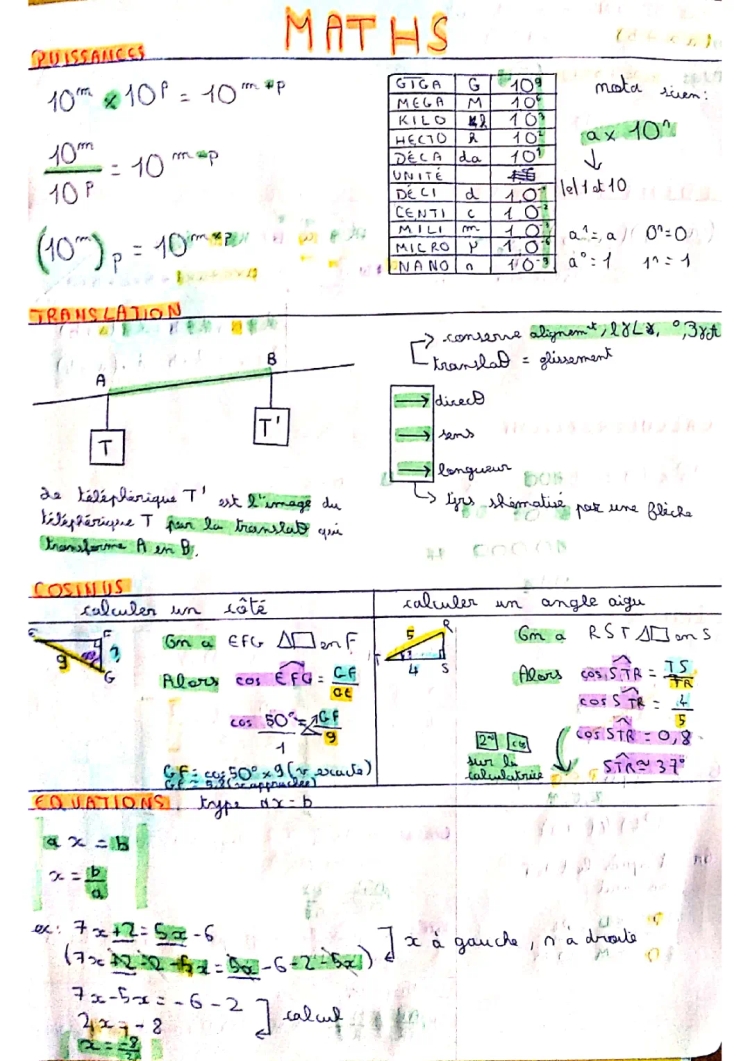 MATHS
PUISSANCES
10^m x 10^p = 10^m+p
10^m / 10^p = 10^m-p
(10^m)p = 10^m×p
GIGA G 10^9
MEGA M 10^6
KILO 10^3
HECTO h 10^2
DÉCA da 10^1
UNITÉ
DÉCI d 10^-1
CENTI c 10^-2
MILI m 10^-3
MICRO μ 10^-6
NANO n 10^-9
a x 10^n
↓
1 et 10
a^1 = a // 0^n = 0
a^0 = 1 1^n = 1
TRANSLATION
A B
T T'
→ conserve
translat = glissement
→ direct
→ sens
→ longueur
→ tjrs shématisé par une flèche
Le téléphérique T' est l'image du
téléphérique T par la translat qui
transforme A en B.
COSINUS
calculer un côté
E F
9 ?
G
On a EFG △ en F
Alors cos EFG = GF/GE
cos 50°/1 = GF/9
GF = cos 50° x 9 (v. exacte)
calculer un angle aigu
R
5
T 4 S
On a RST △ en S
Alors cos STR = TS/TR
cos STR = 4/5
cos STR = 0,8
STR ≃ 37°
2nd cos
sur la
calculatrice
EQUATIONS type ax = b
a x = b
x = b/a
ex: 7x+2 = 5x-6
(7x+2-2-5x = 5x-6-2-5x)
x à gauche, n à droite
7x-5x = -6-2
2x = -8
calcul
x = -8/2